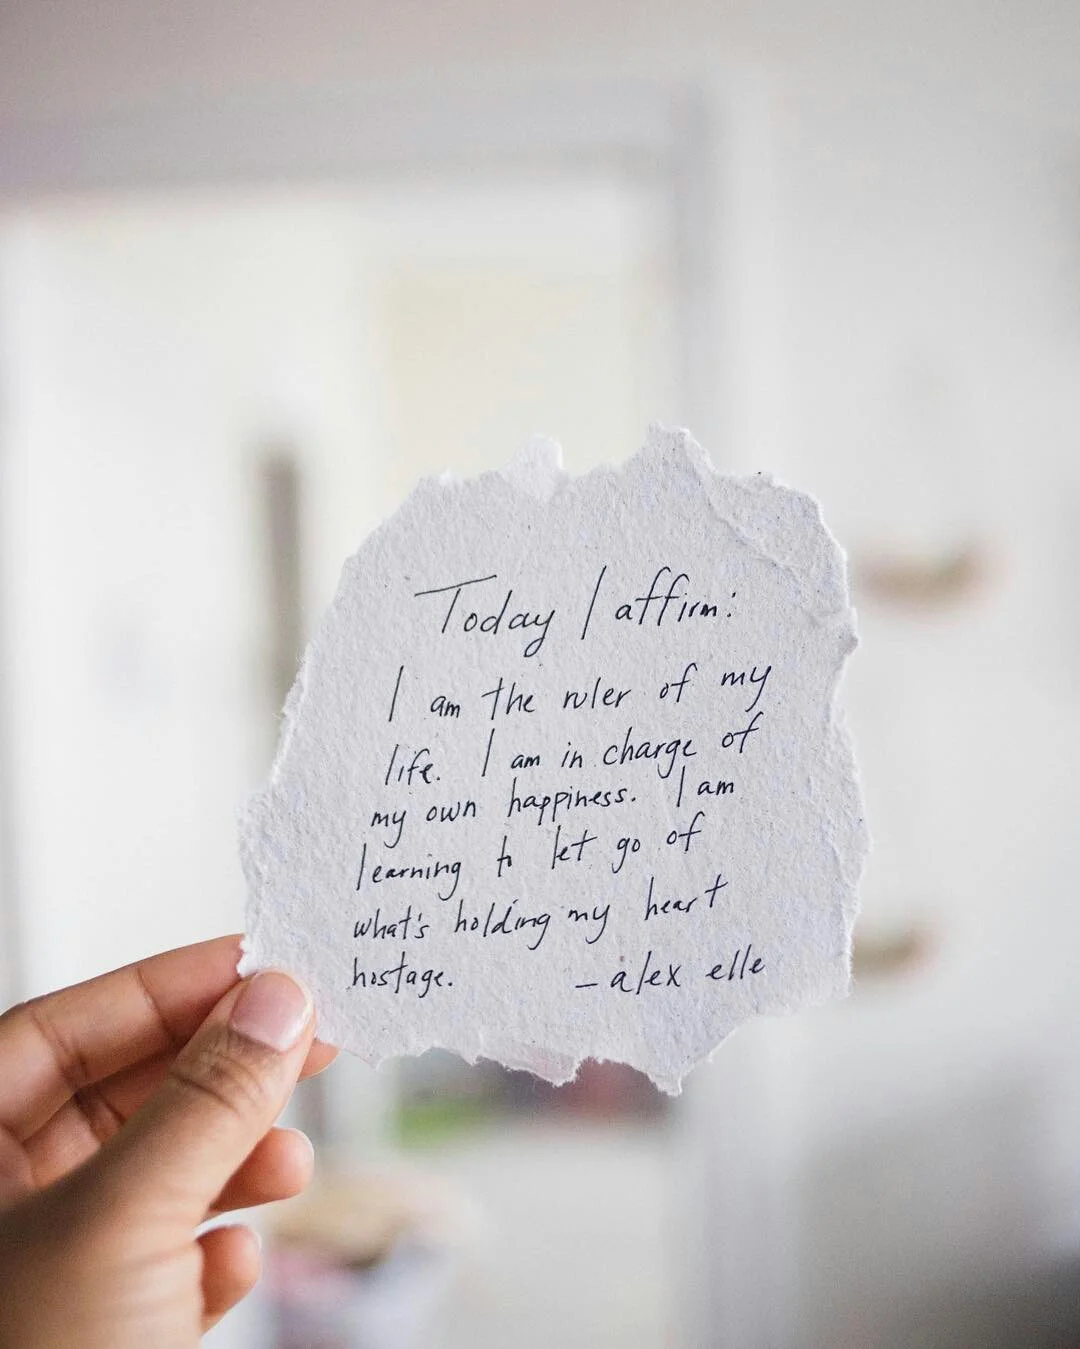 Today I affirm:
I am the ruler of my
life. I am in charge of
my own happiness. I am
learning to let go of
what's holding my heart
hostage. - alex elle